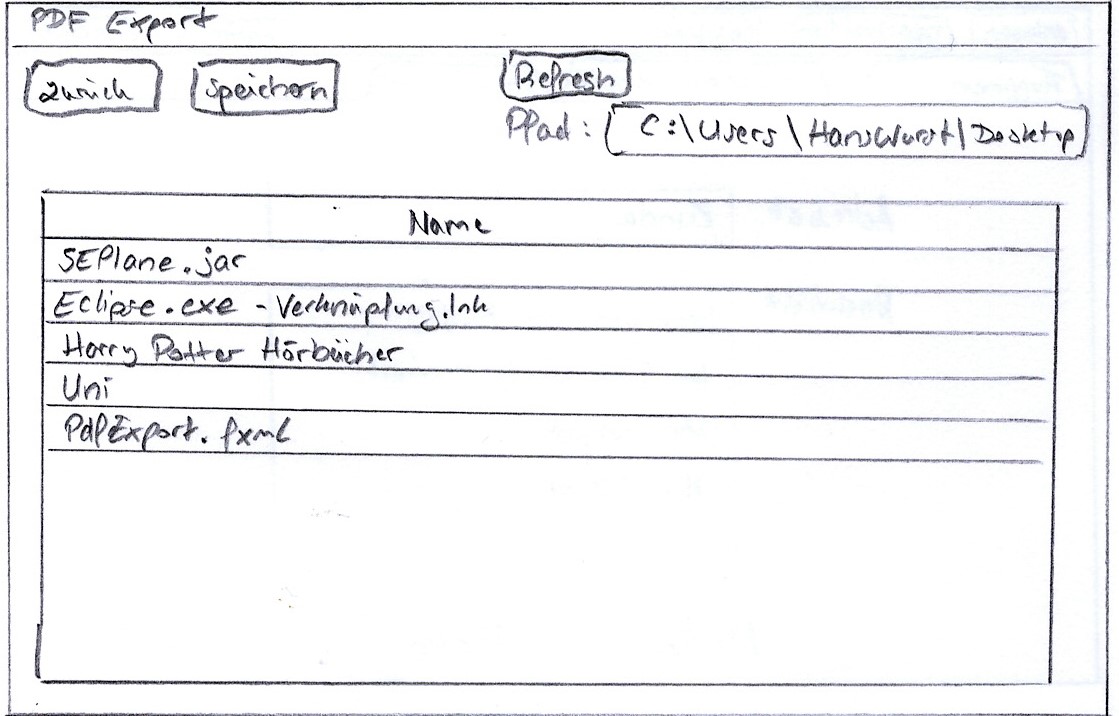 PDF Export
Zurück Speichern Refresh
Pfad: C:\Users\HansWurst\Desktop
Name
SEPlane.jar
Eclipse.exe - Verknüpfung.lnk
Harry Potter Hörbücher
Uni
PdfExport.fxml